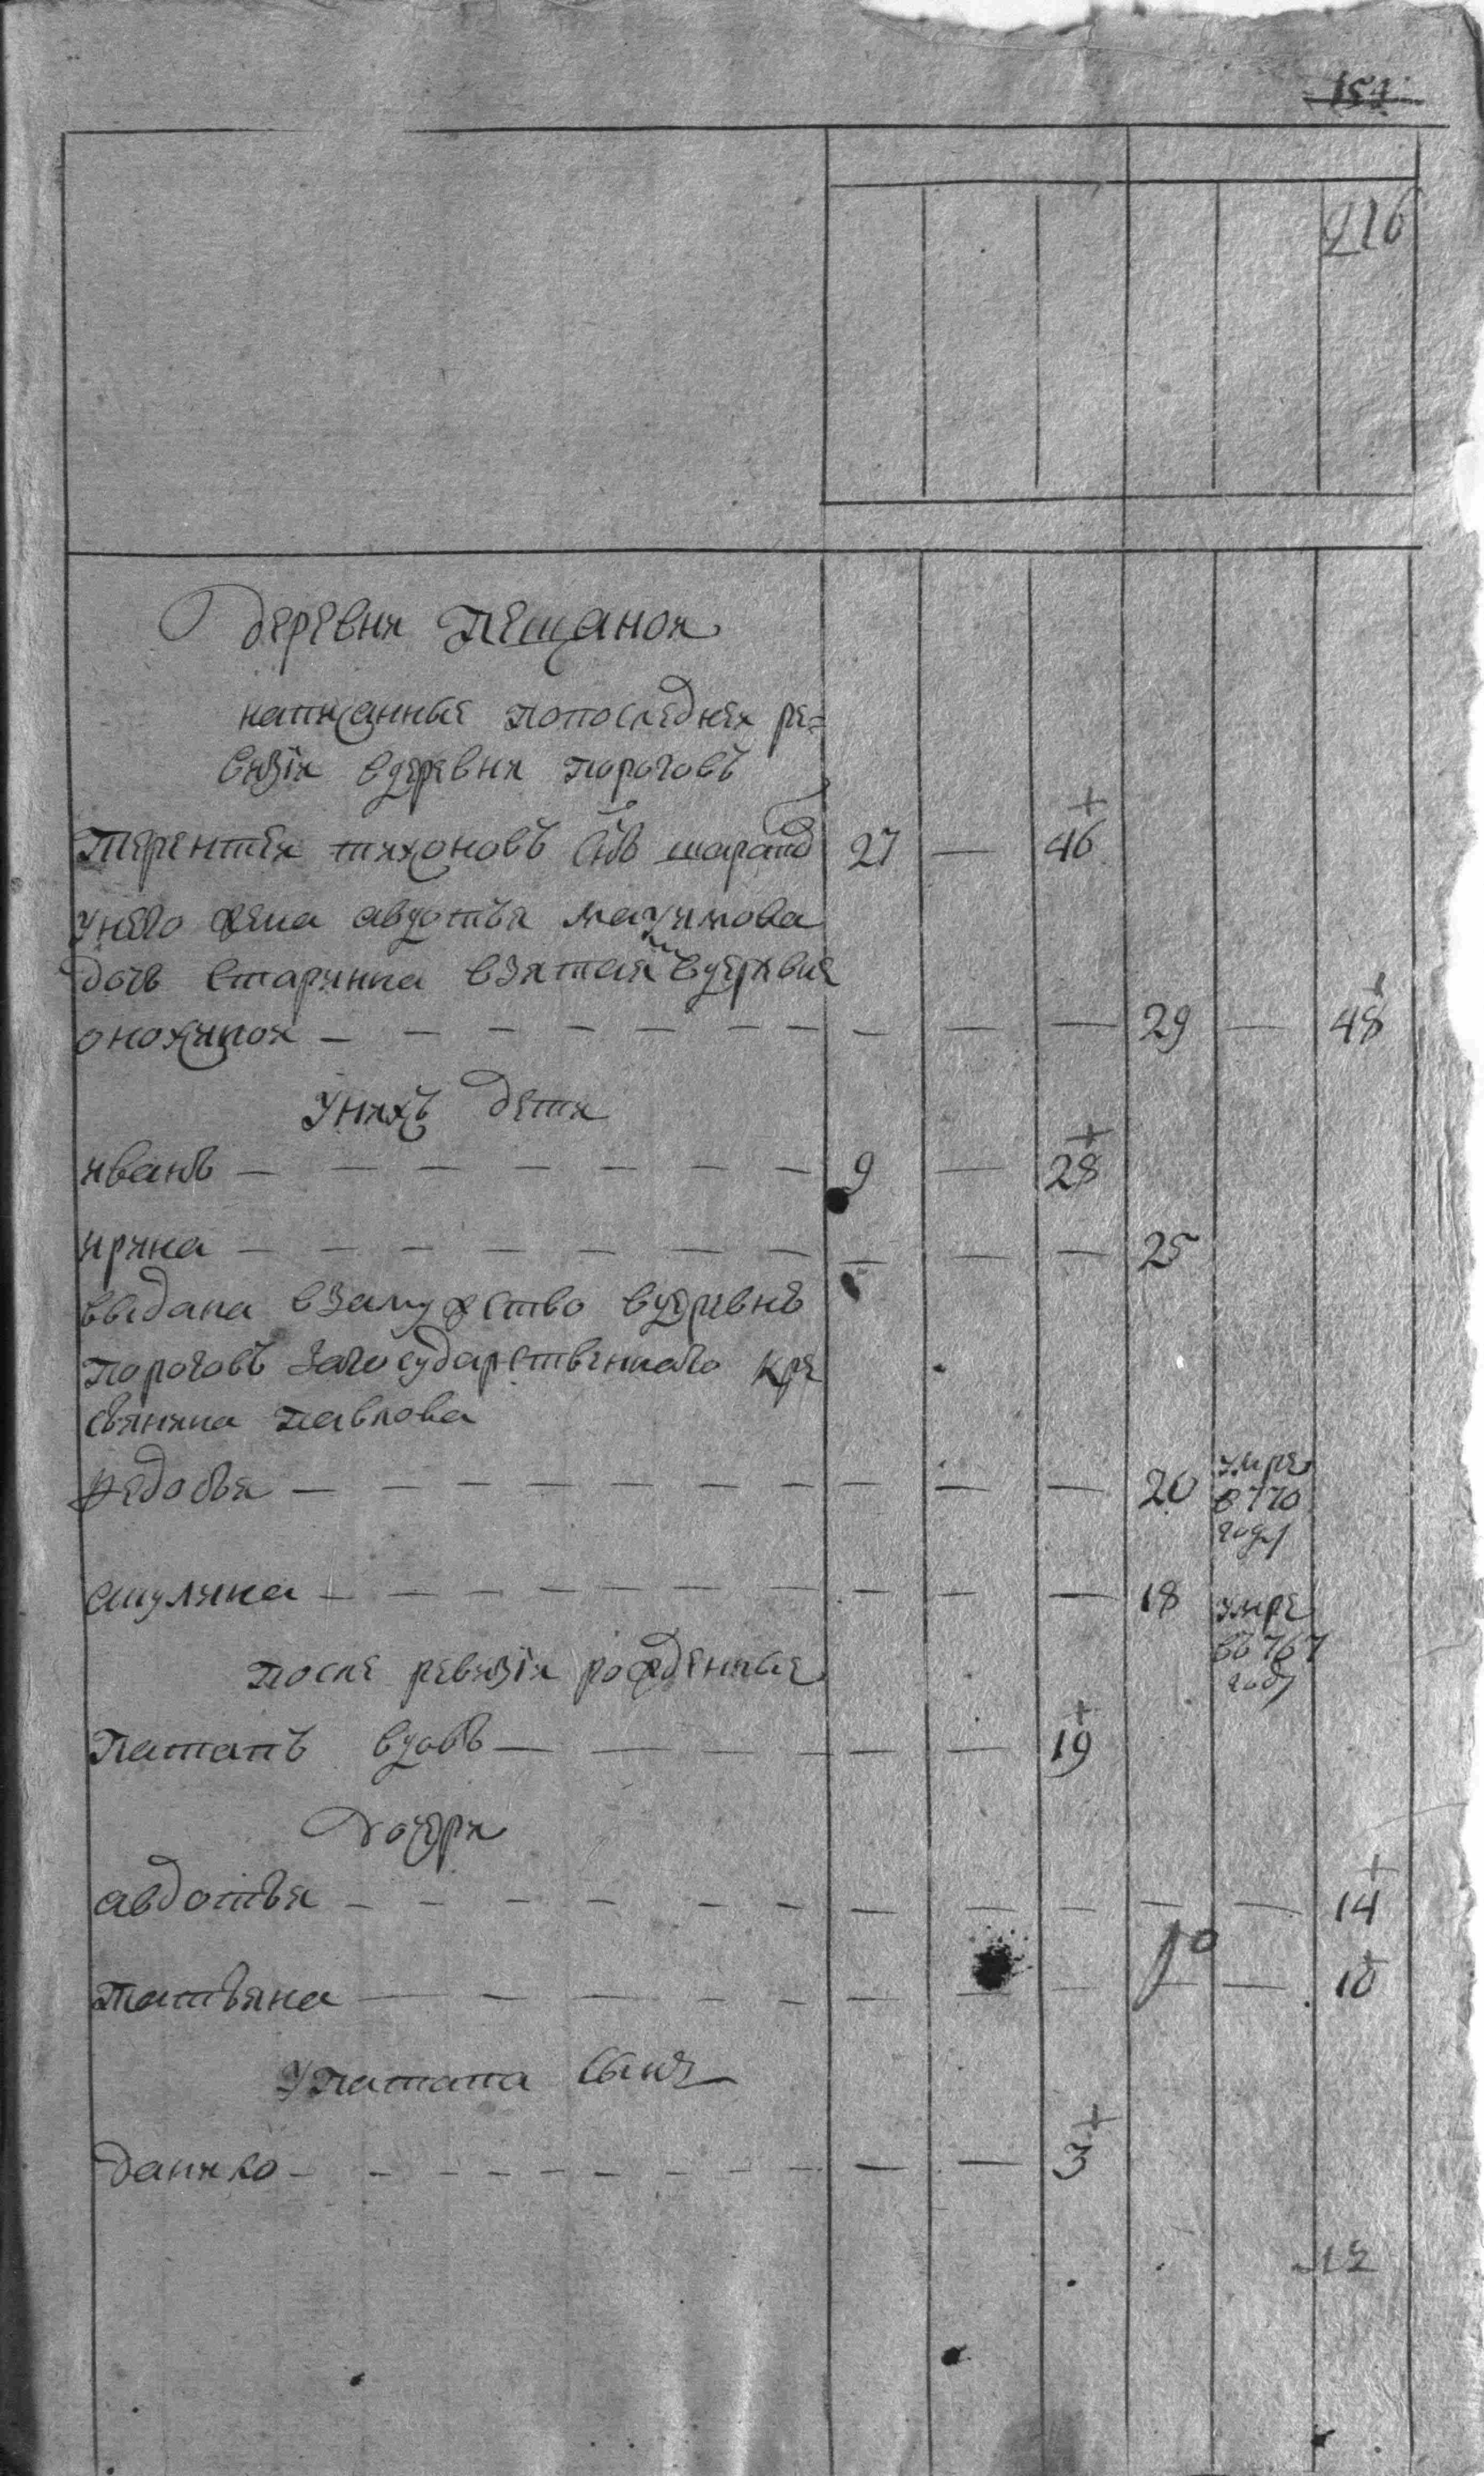 154
216
Деревня Пещаной
написанные попоследней ре=
визiи вдеревни пороговъ
Терентей тихоновъ снъ шарапъ 27 — 46
унего жена авдотья
дочь старинна взятая вдеревне
— — — — — — — — — — 29 — 48
Унихъ дети
иванъ — — — — — — — 9 — 28
ирина — — — — — — — — — — 25
выдана взамужество вдеревнъ
пороговъ загосударственнаго кре
стьянина павлова
федосья — — — — — — — — — — 20 умре
в770
году
акулина — — — — — — — — — — 18 умре
въ767
году
после ревизiи рожденные
Патапъ вдовъ — — — — — — 19
Дочери
авдотья — — — — — — — — — — — 14
татьяна — — — — — — — — — — — 10
Упатапа сынъ
данило — — — — — — — — — 3
12